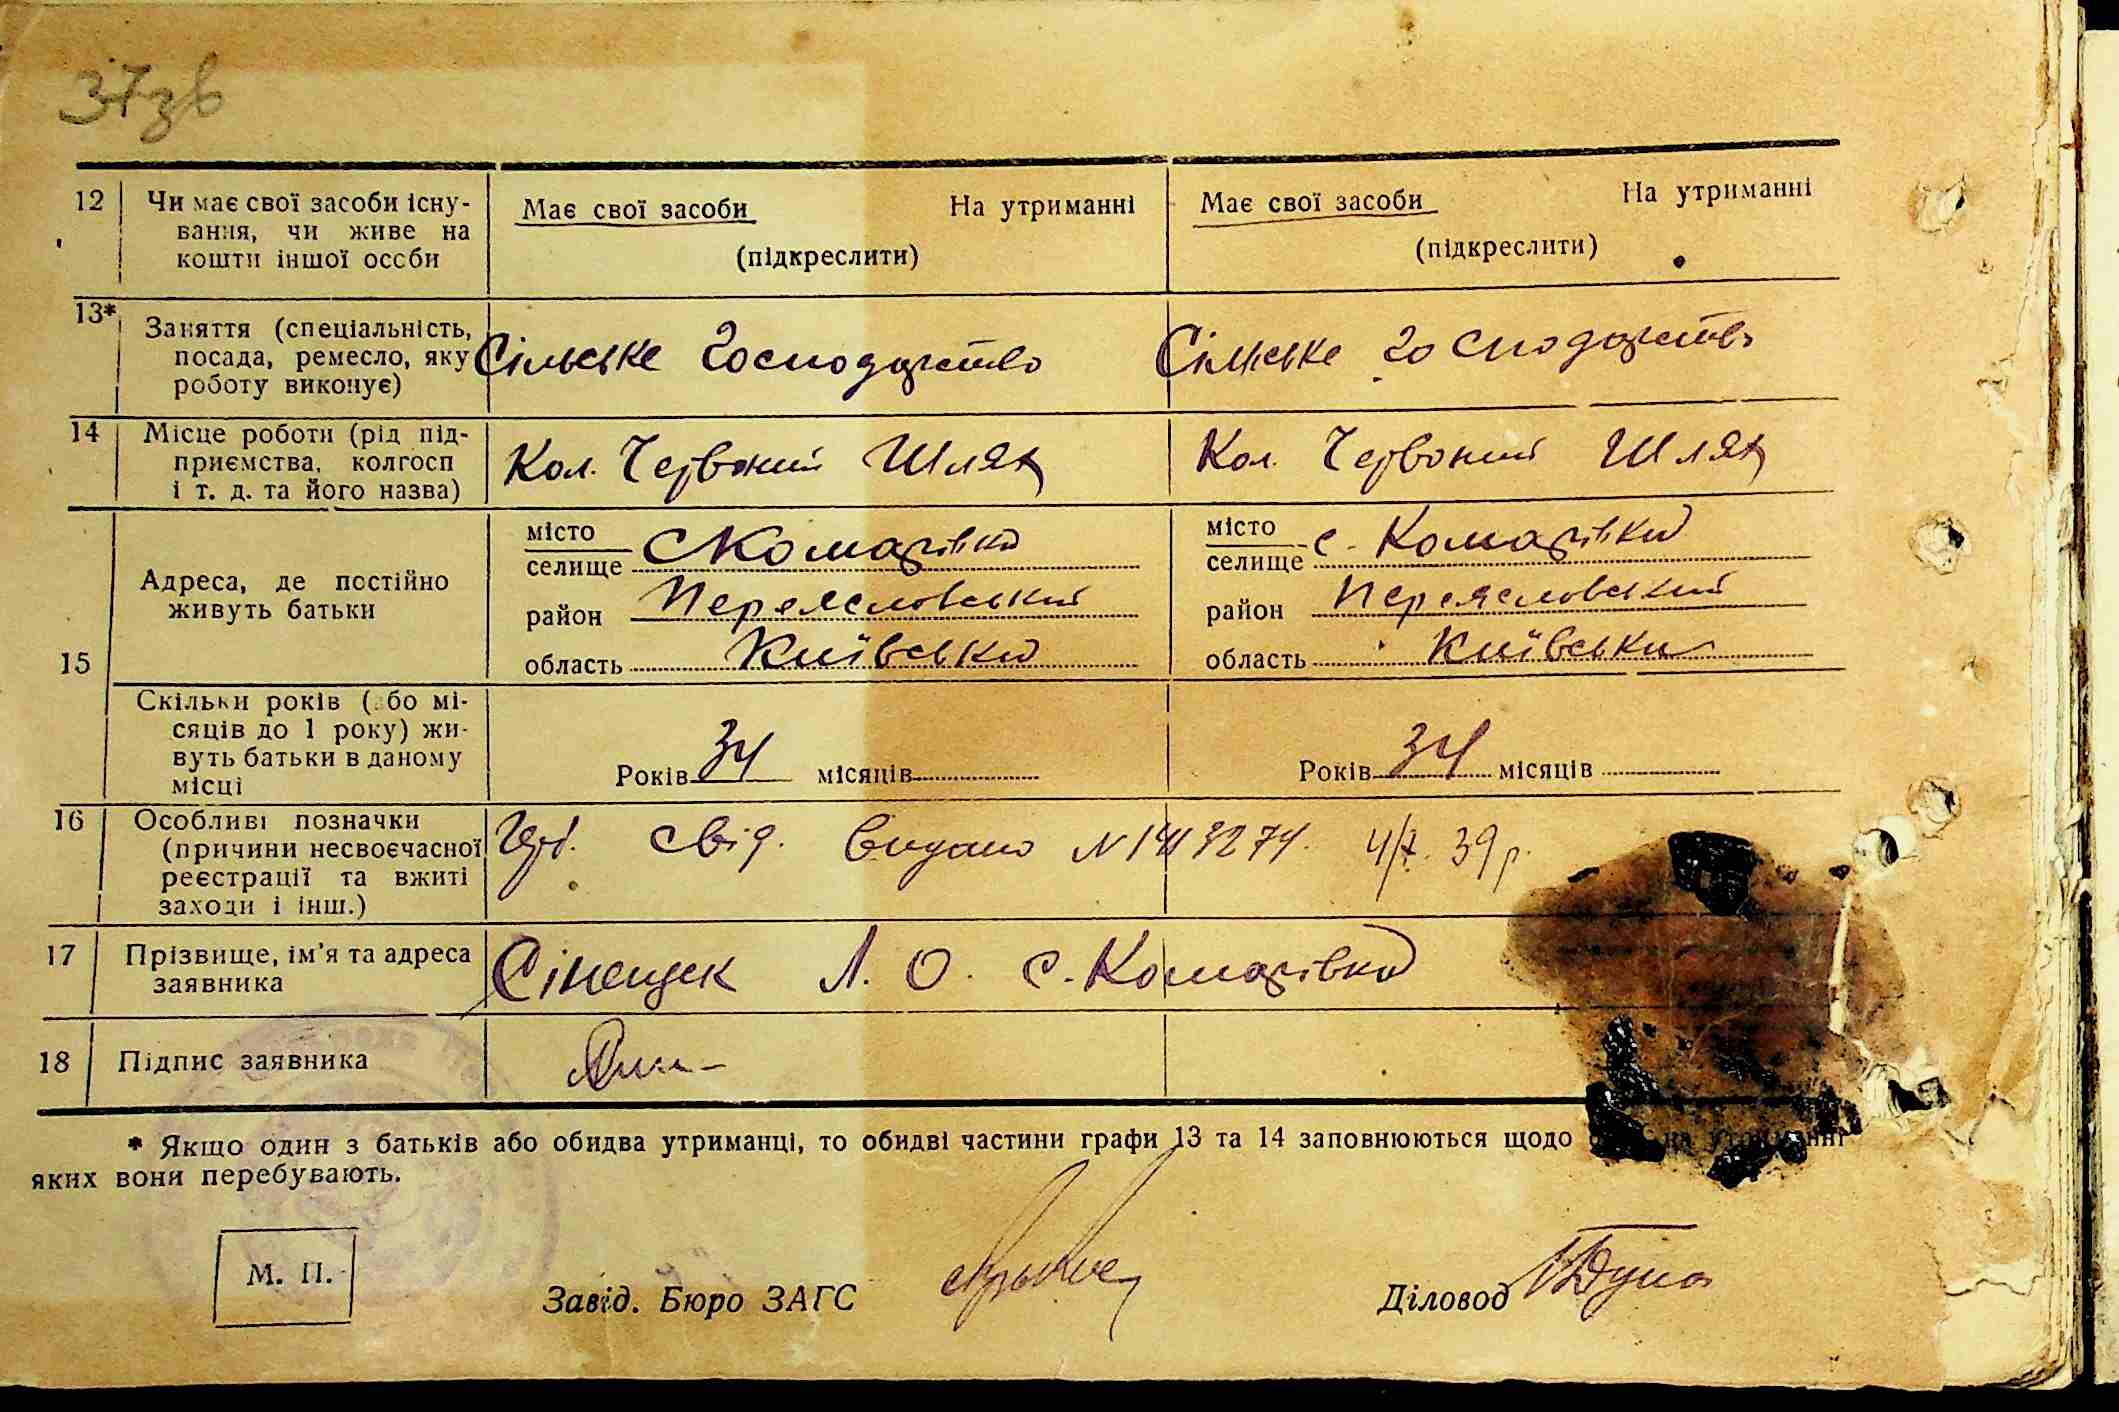 37зв
12 Чи має свої засоби існу- Має свої засоби На утриманні Має свої засоби На утриманні
вання, чи живе на
кошти іншої особи (підкреслити) (підкреслити)
13* Заняття (спеціальність,
посада, ремесло, яку Сільське Господарство Сільське господарство
роботу виконує)
14 Місце роботи (рід під-
приємства, колгосп Кол. Червоний Шлях Кол. Червоний Шлях
і т. д. та його назва)
місто місто
селище с Комарівка селище с. Комарівка
Адреса, де постійно
живуть батьки район Переяславський район Переяславський
15 область Київська область Київська
Скільки років (або мі-
сяців до 1 року) жи-
вуть батьки в даному
місці Років 34 місяців Років 34 місяців
16 Особливі позначки
(причини несвоєчасної свід. видано N 39 р.
реєстрації та вжиті
заходи і інш.)
17 Прізвище, ім'я та адреса Л. О. с. Комарівка
заявника
18 Підпис заявника
* Якщо один з батьків або обидва утриманці, то обидві частини графи 13 та 14 заповнюються щодо на утриманні
яких вони перебувають.
М. П.
Завід. Бюро ЗАГС Діловод